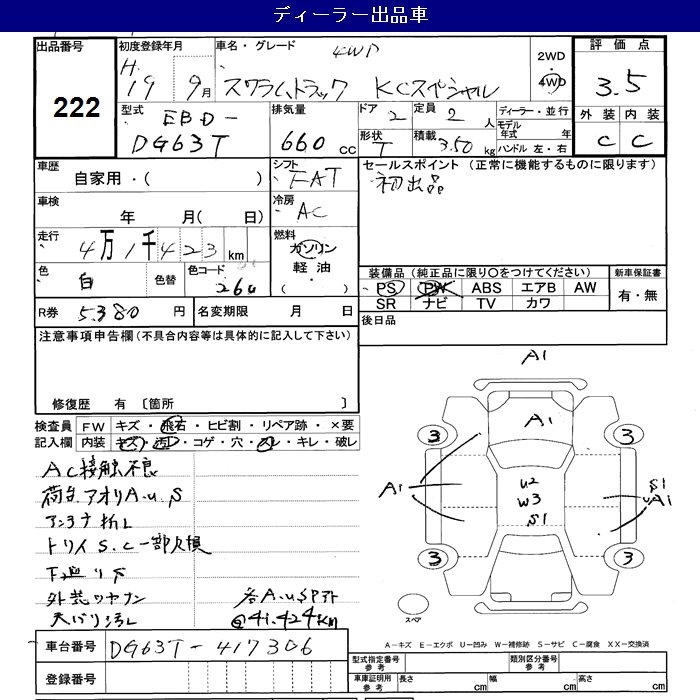 ディーラー出品車
出品番号 初度登録年月 車名・グレード 4WD 2WD 評価点
222 H. 19 9月 スクラムトラック KCスペシャル 4WD 3.5
型式 排気量 ドア 定員 ディーラー・並行 外装 内装
EBD- 2 2人 モデル年式 年 C C
DG63T 660cc 形状 T 積載 350kg ハンドル 左・右
車歴 シフト セールスポイント (正常に機能するものに限ります)
自家用・( ) FAT 初出品
車検 冷房
年 月( 日) AC
走行 燃料
4万1千423km ガソリン
色 色替 色コード 軽油・ 装備品 (純正品に限り○をつけてください) 新車保証書
白 26U ( ) PS PW ABS エアB AW 有・無
R券 5.380円 名変期限 月 日 SR ナビ TV カワ
注意事項申告欄 (不具合内容等は具体的に記入して下さい) 後日品
修復歴 有 〔箇所 〕
検査員 FW キズ・飛石・ヒビ割・リペア跡・×要
記入欄 内装 キズ・汚レ・コゲ・穴・スレ・キレ・破レ
A1
A1
3 3
A1 U2 S1
W3 A1
S1
3 3
スペア
AC接触不良
荷台.アオリA.U.S
アンテナ折レ
トリイS.C一部欠損
下廻りS
外装ツヤナシ 各A.U.S
@41.424km
車台番号 DG63T-417306
登録番号
A－キズ E－エクボ U－凹み W－補修跡 S－サビ C－腐食 XX－交換済
型式指定番号 参考 類別区分番号 参考
車庫証明用 参考 長さ cm 幅 cm 高さ cm